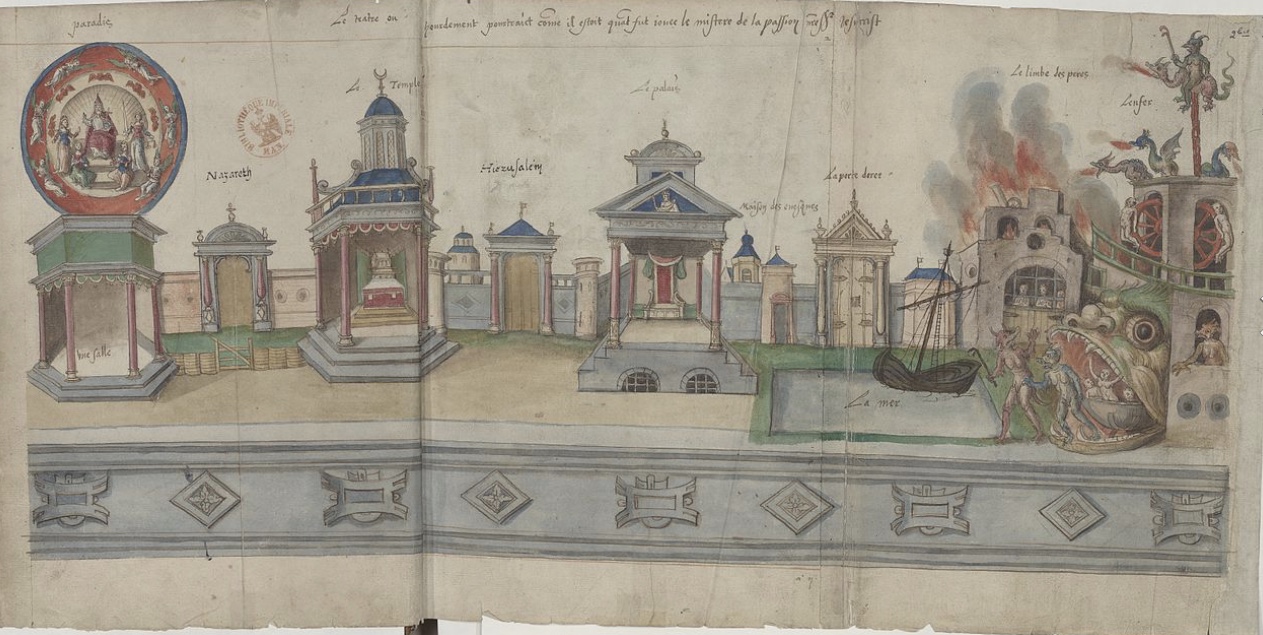 paradis
Le teatre ou hourdement pourtraict come il estoit quat fut ioue le mistere de la passion nre Sr Jesucrist
Le Temple
Le palais
Le limbe des peres
Lenfer
Nazareth
Hierusalem
La porte doree
Maison des evesques
BIBLIOTHEQUE IMPERIALE
MAN.
une salle
La mer